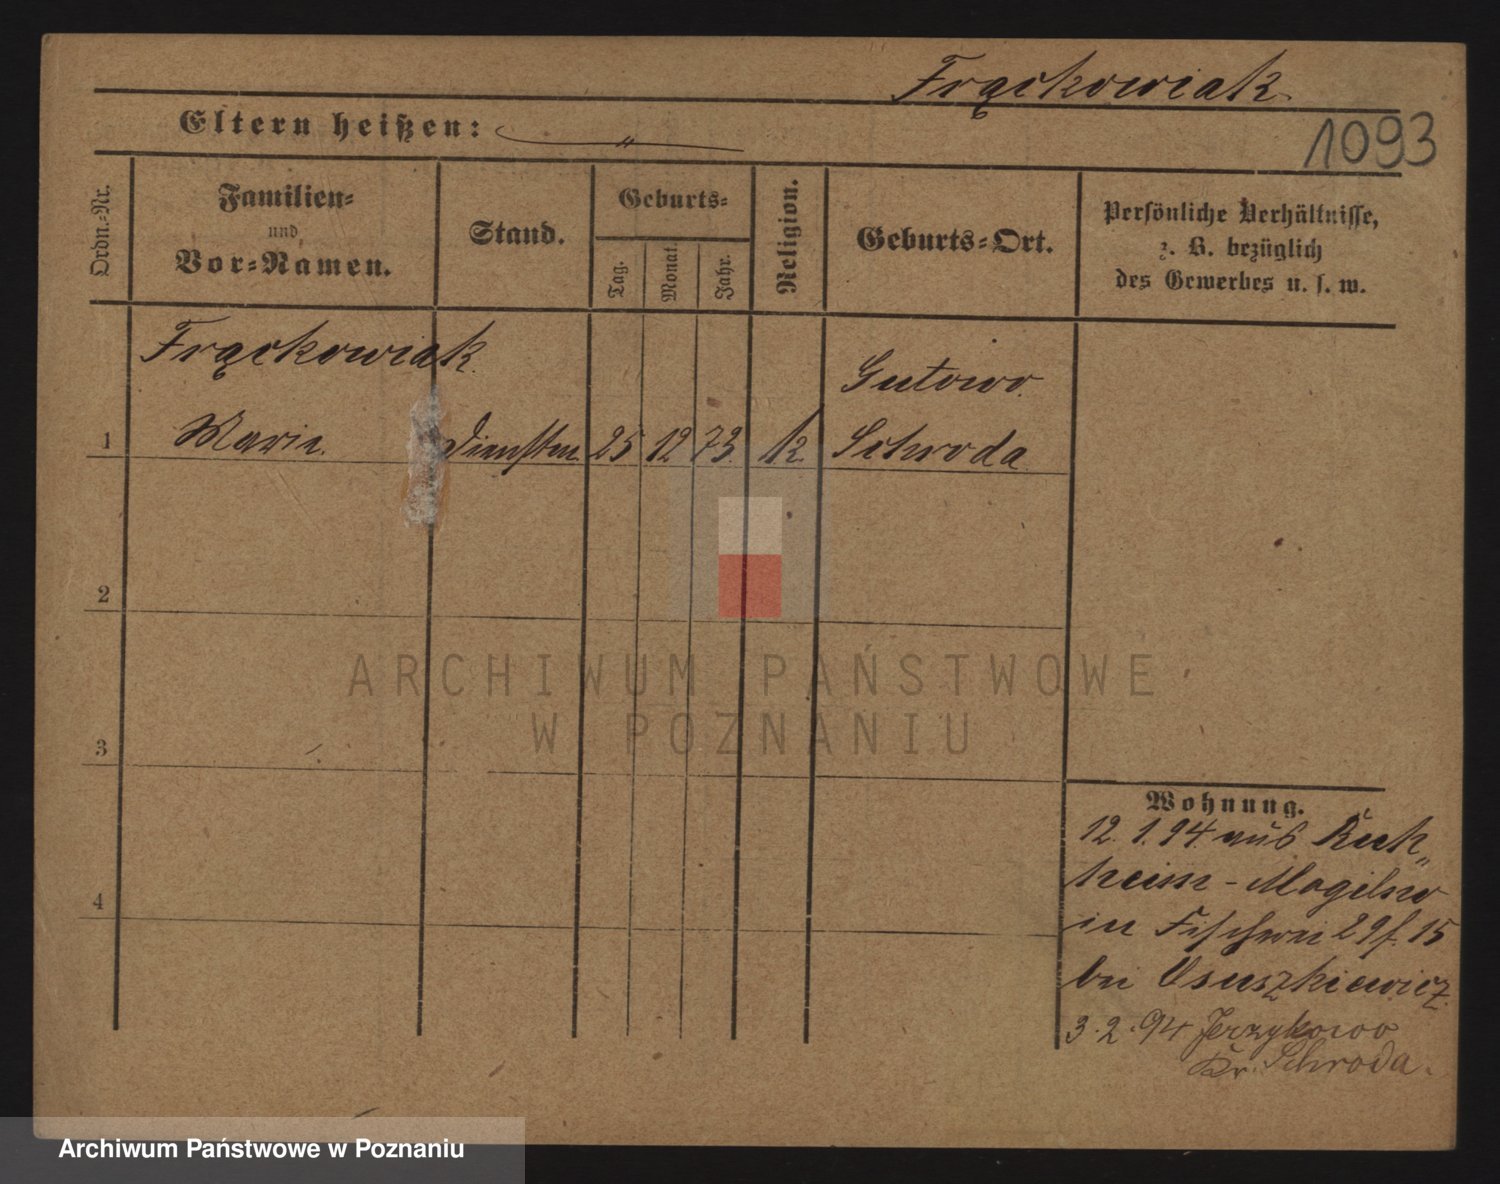 Frąckowiak
Eltern heißen: "
1093
Ordn.=Nr.
Familien=
und
Vor=Namen.
Stand.
Geburts=
Tag.
Monat.
Jahr.
Religion.
Geburts=Ort.
Persönliche Verhältnisse,
z. B. bezüglich
des Gewerbes u. s. w.
Frąckowiak
Gutowo
1 Marie. 25 12 73. k. Schroda
2
3
4
Wohnung.
12. 1. 94 aus
heim - Mogilno
in Fischerei 29 15
bei Osuszkiewicz.
3. 2. 94 Jerzykowo
Kr. Schroda.
ARCHIWUM PAŃSTWOWE
W POZNANIU
Archiwum Państwowe w Poznaniu